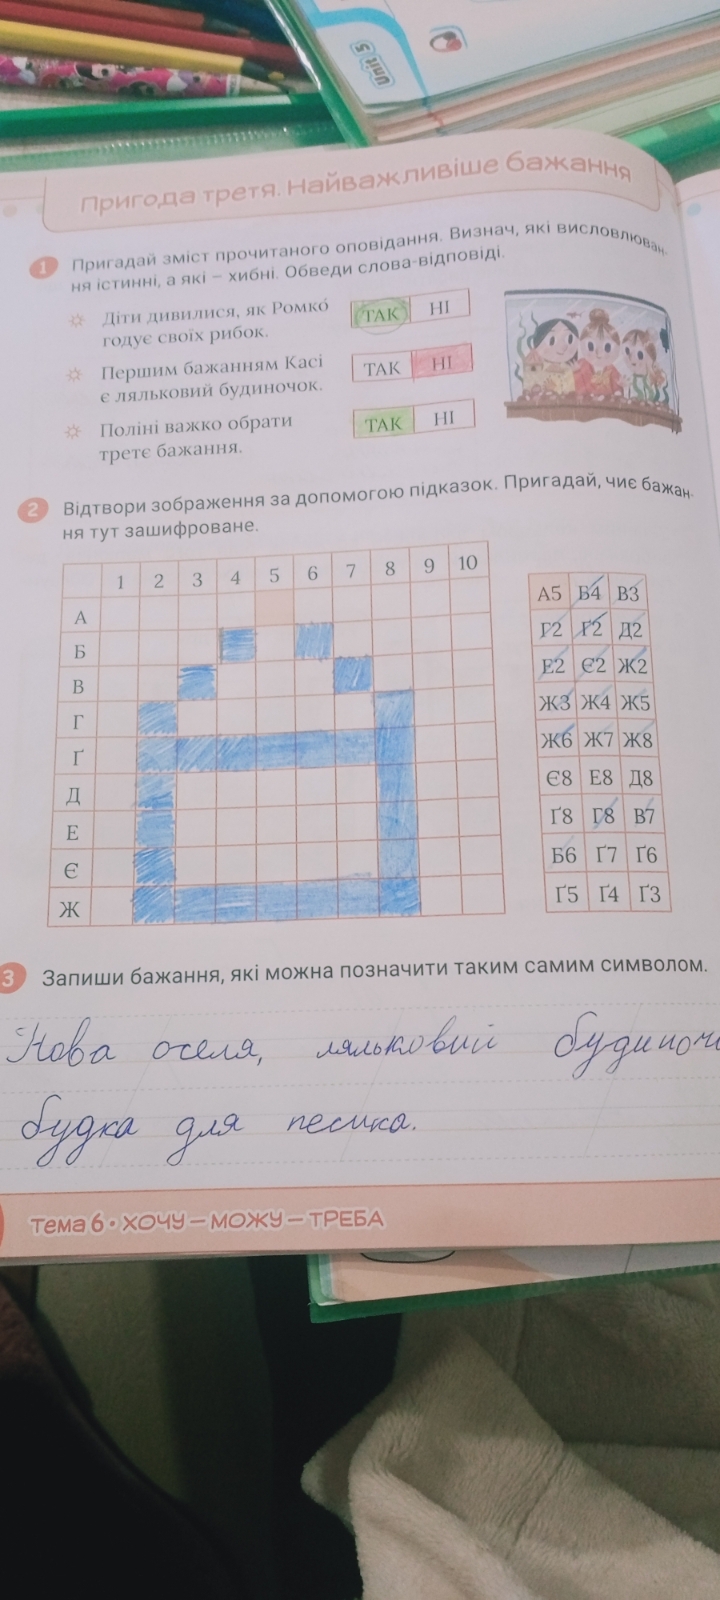 Unit 5
Пригода третя. Найважливіше бажання
1 Пригадай зміст прочитаного оповідання. Визнач, які висловлюван-
ня істинні, а які – хибні. Обведи слова-відповіді.
Діти дивилися, як Ромко́ ТАК НІ
годує своїх рибок.
Першим бажанням Касі ТАК НІ
є ляльковий будиночок.
Поліні важко обрати ТАК НІ
третє бажання.
2 Відтвори зображення за допомогою підказок. Пригадай, чиє бажан-
ня тут зашифроване.
1 2 3 4 5 6 7 8 9 10
А
Б
В
Г
Ґ
Д
Е
Є
Ж
А5 Б4 В3
Г2 Ґ2 Д2
Е2 Є2 Ж2
Ж3 Ж4 Ж5
Ж6 Ж7 Ж8
Є8 Е8 Д8
Ґ8 Г8 В7
Б6 Ґ7 Ґ6
Ґ5 Ґ4 Ґ3
3 Запиши бажання, які можна позначити таким самим символом.
Нова оселя, ляльковий будиноч
будка для песика.
Тема 6 • ХОЧУ – МОЖУ – ТРЕБА